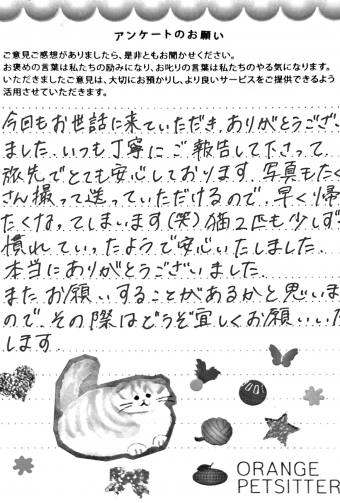 アンケートのお願い
ご意見ご感想がありましたら、是非ともお聞かせください。
お褒めの言葉は私たちの励みになり、お叱りの言葉は私たちのやる気になります。
いただきましたご意見は、大切にお預かりし、より良いサービスをご提供できるよう
活用させていただきます。
今回もお世話に来ていただき、ありがとうござい
ました。いつも丁寧にご報告して下さって、
旅先でとても安心しております。写真もたく
さん撮って送っていただけるので、早く帰り
たくなってしまいます(笑)猫2匹も少しずつ
慣れていったようで安心いたしました。
本当にありがとうございました。
またお願いすることがあるかと思います
ので、その際はどうぞ宜しくお願いいた
します。
ORANGE
PETSITTER